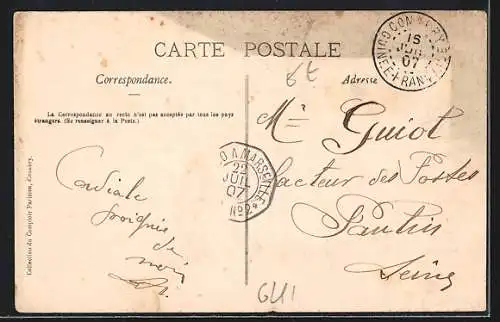 CARTE POSTALE
Correspondance.
Adresse
La Correspondance au recto n'est pas acceptée par tous les pays
étrangers. (Se renseigner à la Poste.)
Collection du Comptoir Parisien, Conakry.
Cordiale
poignée
de
main
CONAKRY
15
JUIL
07
FRANÇAISE
A MARSEILLE
22
JUIL
07
Nº2
Mr Guiot
facteur des Postes
Pantin
Seine